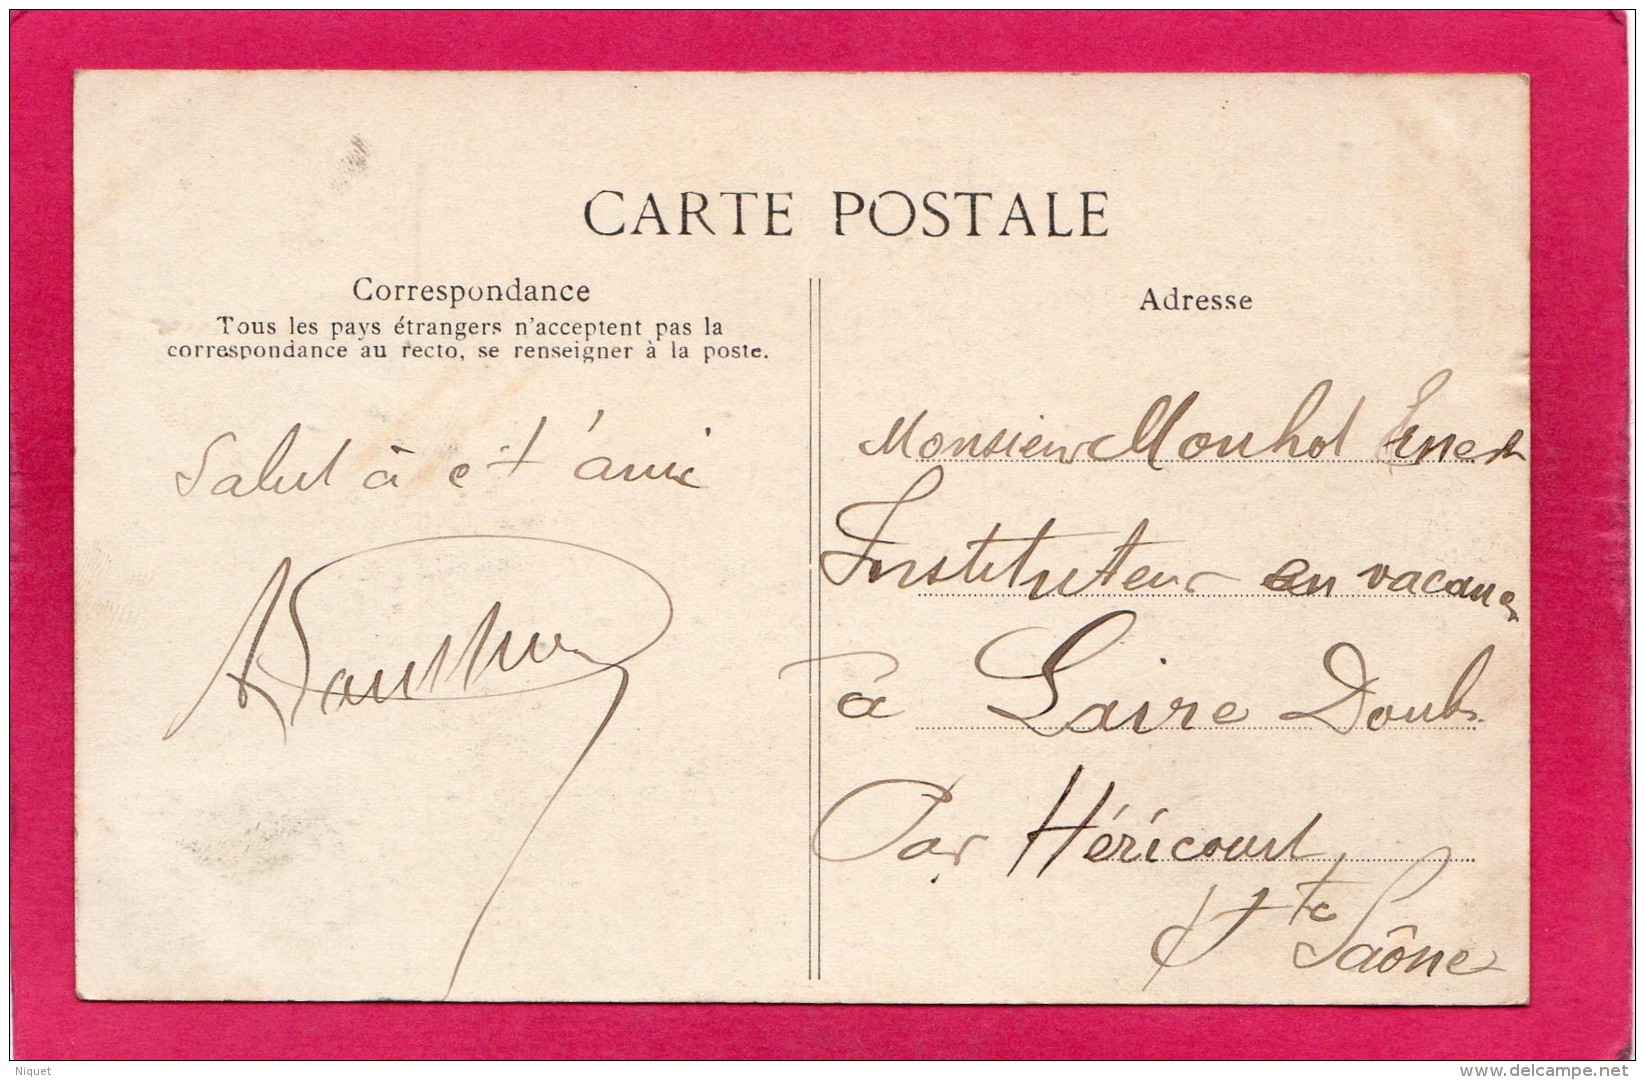 CARTE POSTALE
Correspondance
Tous les pays étrangers n'acceptent pas la
correspondance au recto, se renseigner à la poste.
Salut à et ami
Adresse
Monsieur Mouhot Ernest
Instituteur en vacances
à Laire Doubs
Par Héricourt,
Hte Saône
Niquet
www.delcampe.net